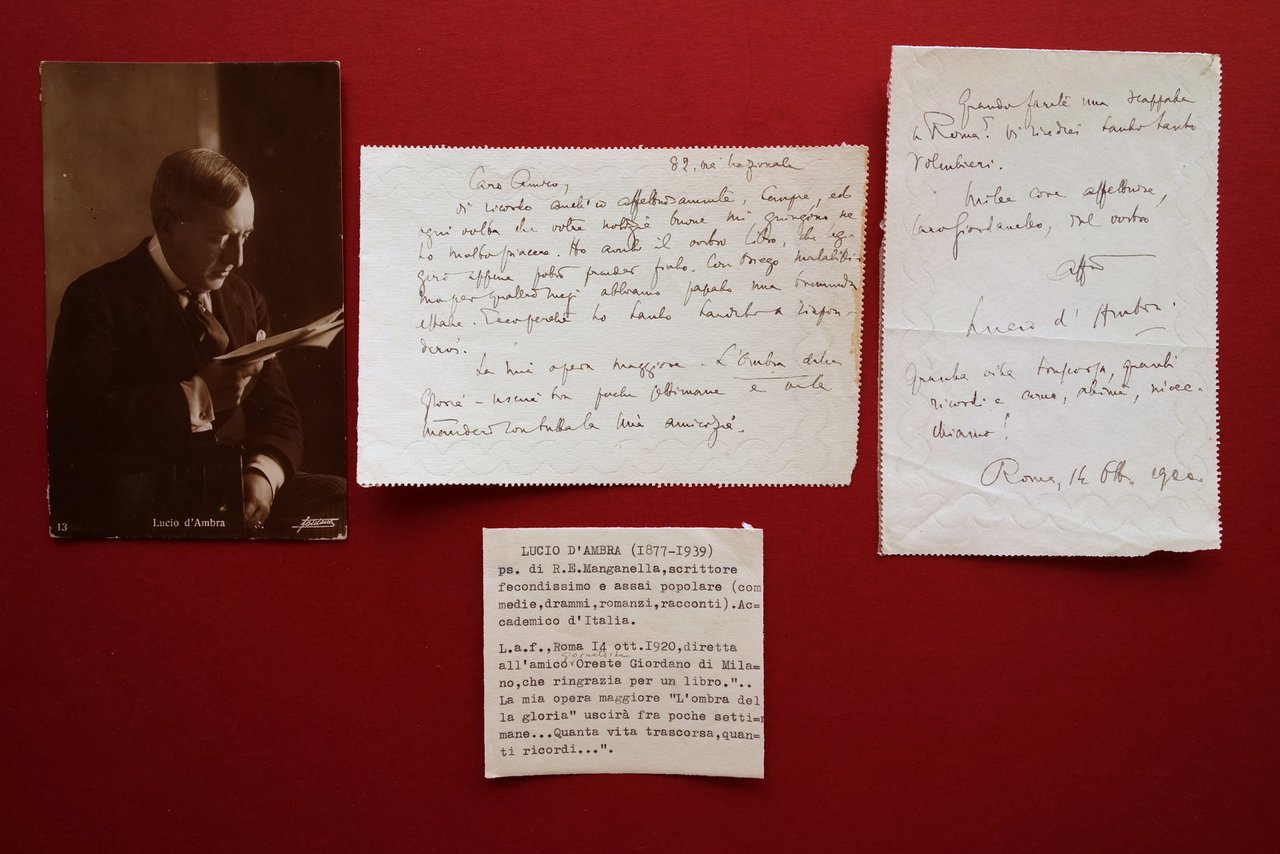 13
Lucio d'Ambra
82, via Nazionale
Caro Amico,
Vi ricordo anch'io affettuosamente, sempre, ed
ogni volta che vostre notizie buone mi giungono ne
ho molto piacere. Ho avuto il vostro libro, che
appena potrò prender fiato. Con
ma per quattro mesi abbiamo passato una tremenda
estate. Ecco perché ho tanto tardato a rispon-
dervi.
La mia opera maggiore - L'Ombra della
gloria - uscirà tra poche settimane e ve la
manderò con tutta la mia amicizia.
Quando farete una scappata
a Roma? Vi rivedrei tanto tanto
volentieri.
Mille cose affettuose,
caro Giordano, dal vostro
aff.
Lucio d'Ambra.
Quanta vita trascorsa, quanti
ricordi e come, ahimè, invec-
chiamo!
Roma, 14 Ott. 1920
LUCIO D'AMBRA (I877-I939)
ps. di R.E.Manganella,scrittore
fecondissimo e assai popolare (com
medie,drammi,romanzi,racconti).Ac=
cademico d'Italia.
L.a.f.,Roma I4 ott.I920,diretta
giornalista
all'amico Oreste Giordano di Mila=
no,che ringrazia per un libro."..
La mia opera maggiore "L'ombra del
la gloria" uscirà fra poche setti=
mane...Quanta vita trascorsa,quan=
ti ricordi...".